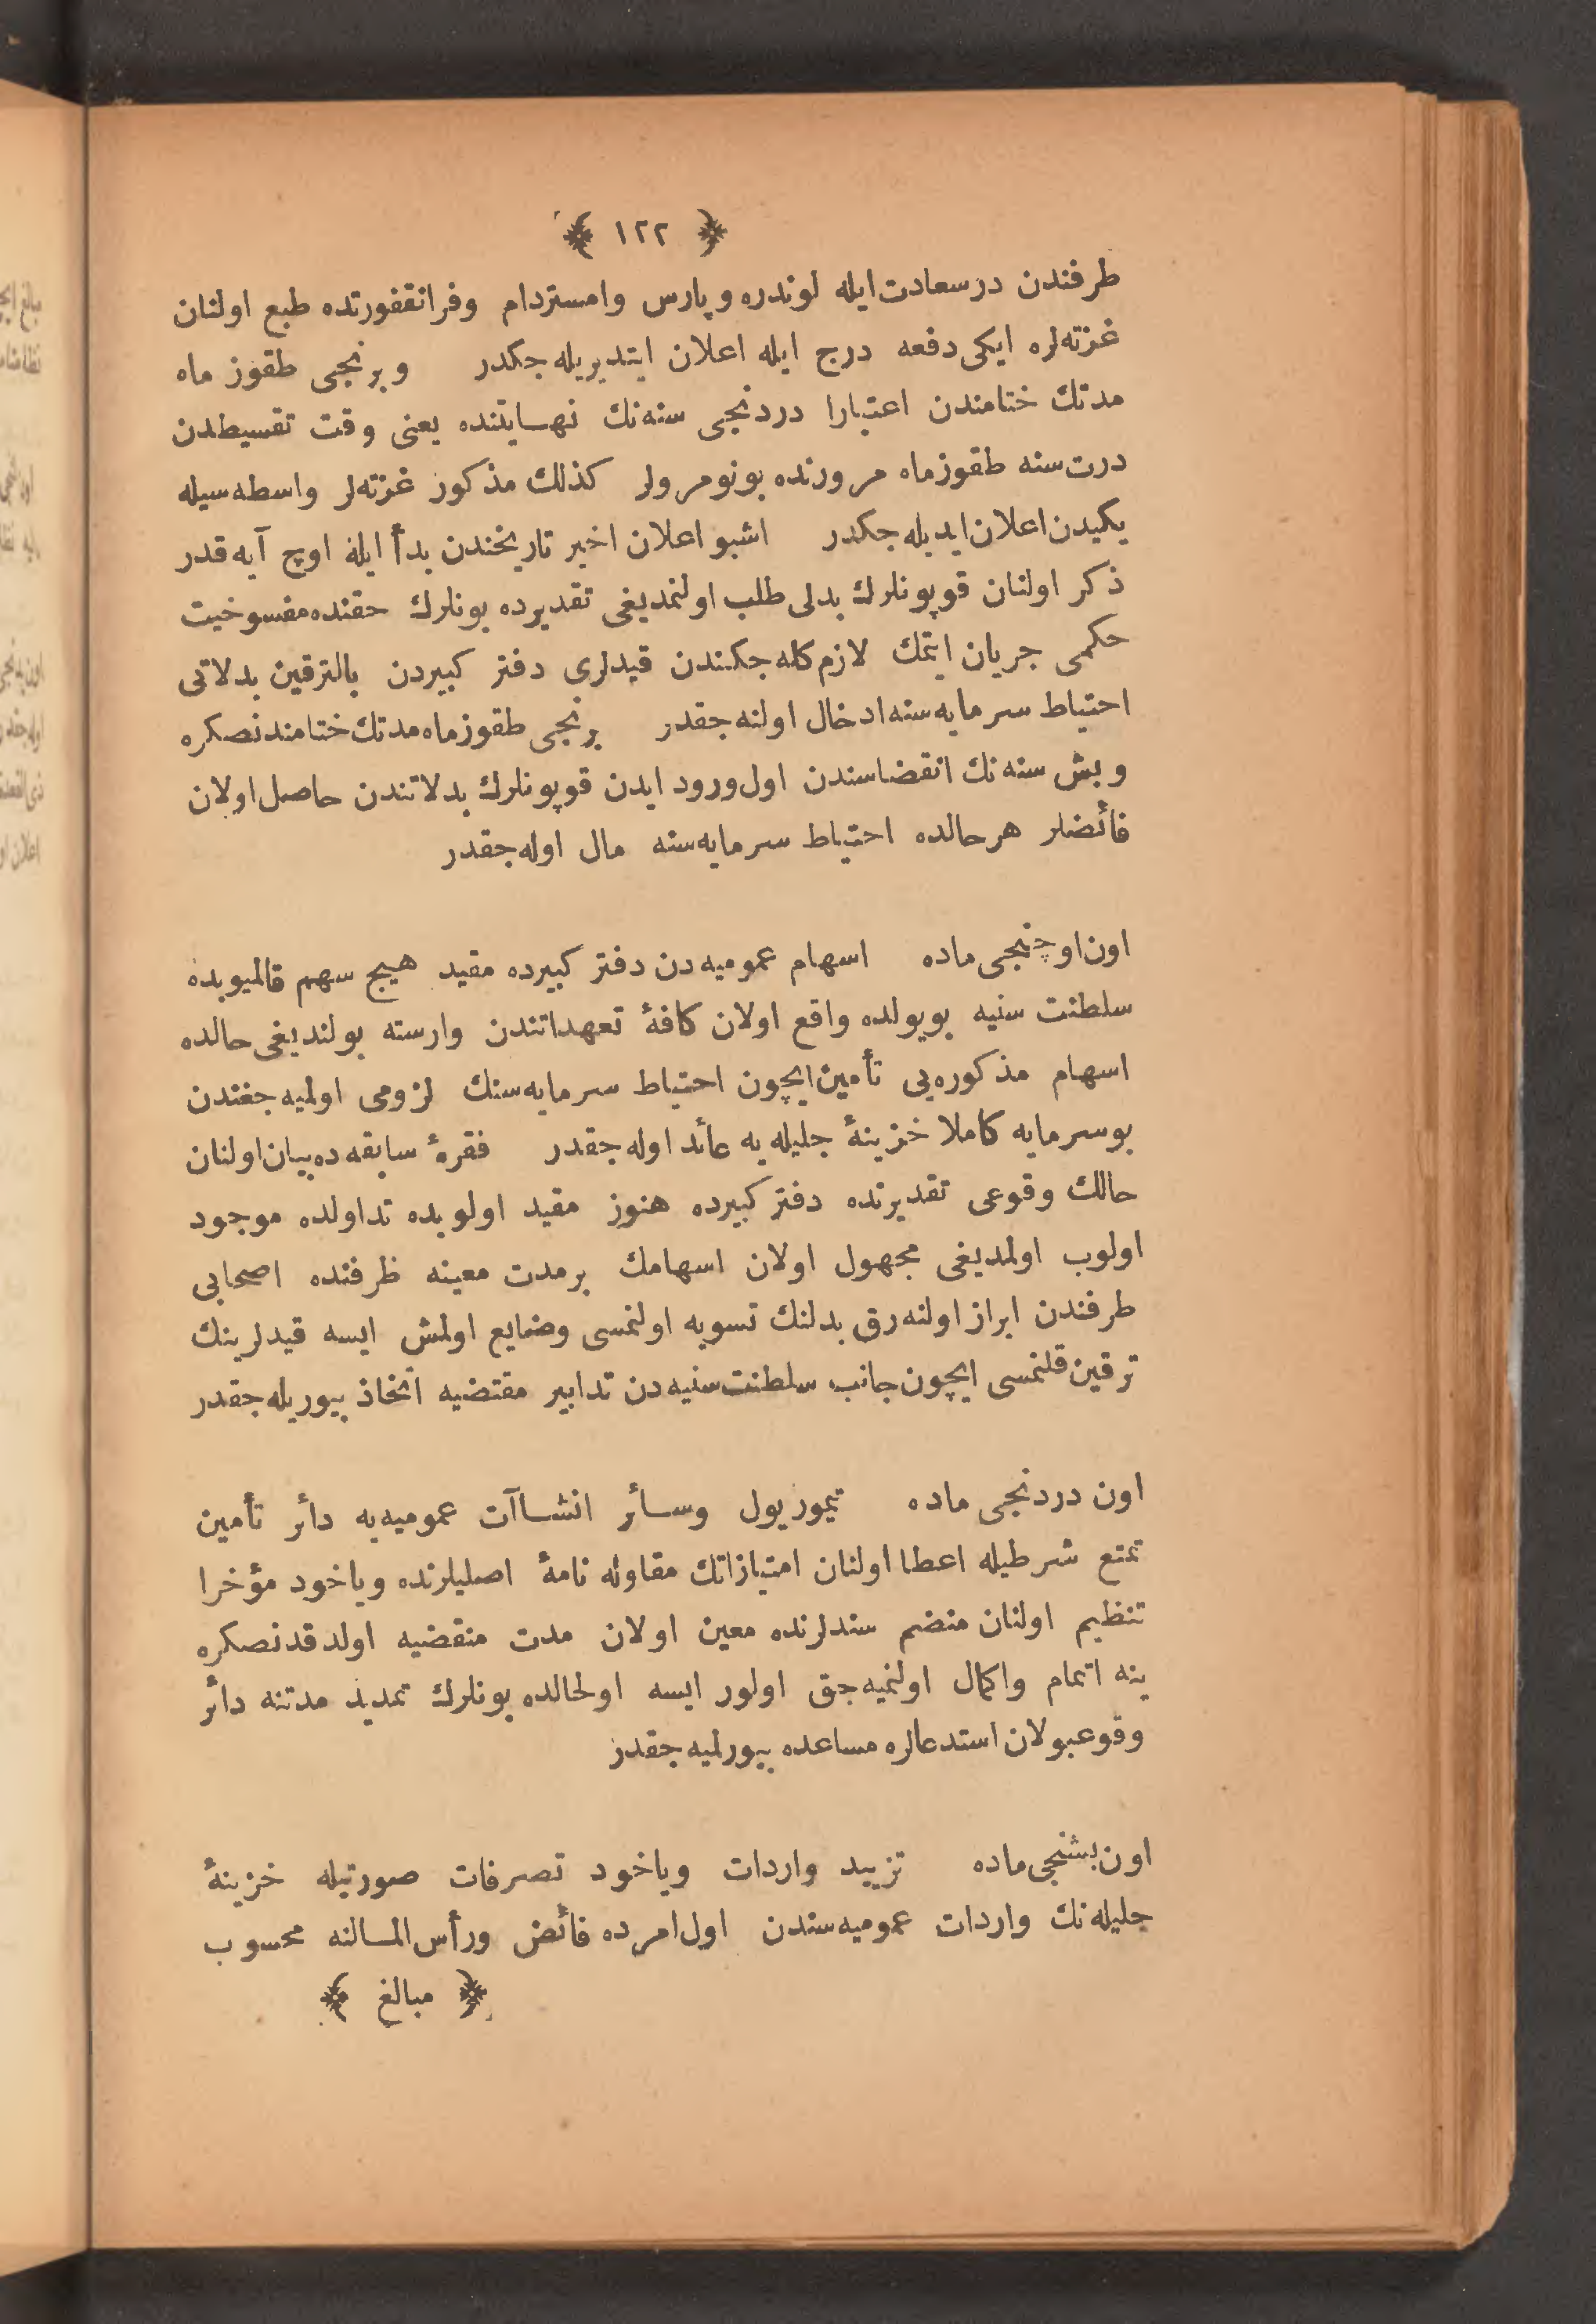 ﴿ ١٢٢ ﴾
طرفندن درسعادت ایله لوندره و پارس وامستردام وفرانقفورتده طبع اولنان
غزته‌لره ایکی دفعه درج ایله اعلان ایتدیریله جکدر و برنجی طقوز ماه
مدتك ختامندن اعتبارا دردنجی سنه‌نك نهایتنده یعنی وقت تقسیطدن
درت سنه طقوز ماه مرورنده بونومرولر كذلك مذکور غزته‌لر واسطه سیله
یکیدن اعلان ایدیله جکدر اشبو اعلان اخیر تاریخندن بدأ ایله اوچ آیه قدر
ذکر اولنان قوپونلرك بدلی طلب اولنمدیغی تقدیرده بونلرك حقنده مفسوخیت
حکمی جریان ایتمك لازم کله جکندن قیدلری دفتر کبیردن بالترقین بدلاتی
احتیاط سرمایه سنه ادخال اولنه جقدر برنجی طقوز ماه مدتك ختامندنصکره
وبش سنه‌نك انقضاسندن اول ورود ایدن قوپونلرك بدلاتندن حاصل اولان
فائضلر هر حالده احتیاط سرمایه سنه مال اوله جقدر
اون اوچنجی ماده اسهام عمومیه دن دفتر کبیرده مقید هیچ سهم قالمیوبده
سلطنت سنیه بویولده واقع اولان کافۀ تعهداتندن وارسته بولندیغی حالده
اسهام مذکوره‌یی تأمین ایچون احتیاط سرمایه سنك لزومی اولمیه جغندن
بوسرمایه کاملا خزینۀ جلیله یه عائد اوله جقدر فقرۀ سابقه ده بیان اولنان
حالك وقوعی تقدیرنده دفتر کبیرده هنوز مقید اولوبده تداولده موجود
اولوب اولمدیغی مجهول اولان اسهامك بر مدت معینه ظرفنده اصحابی
طرفندن ابراز اولنه رق بدلنك تسویه اولنمسی وضایع اولمش ایسه قیدلرینك
ترقین قلنمسی ایچون جانب سلطنت سنیه دن تدابیر مقتضیه اتخاذ بیوریله جقدر
اون دردنجی ماده تیمور یول وسائر انشاآت عمومیه یه دائر تأمین
تمتع شرطیله اعطا اولنان امتیازاتك مقاوله نامۀ اصلیلرنده ویاخود مؤخرا
تنظیم اولنان منضم سندلرنده معین اولان مدت منقضیه اولدقدنصکره
ینه اتمام واکمال اولنمیه جق اولور ایسه اولحالده بونلرك تمدید مدتنه دائر
وقوعبولان استدعالره مساعده بیورلمیه جقدر
اون بشنجی ماده تزیید واردات ویاخود تصرفات صورتیله خزینۀ
جلیله نك واردات عمومیه سندن اول امرده فائض ورأس المالنه محسوب
﴿ مبالغ ﴾